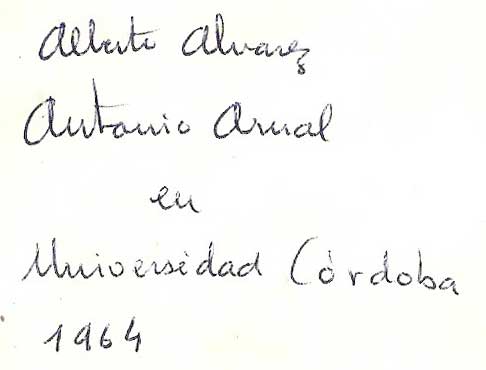 Alberto Alvarez
Antonio Arnal
en
Universidad Córdoba
1964